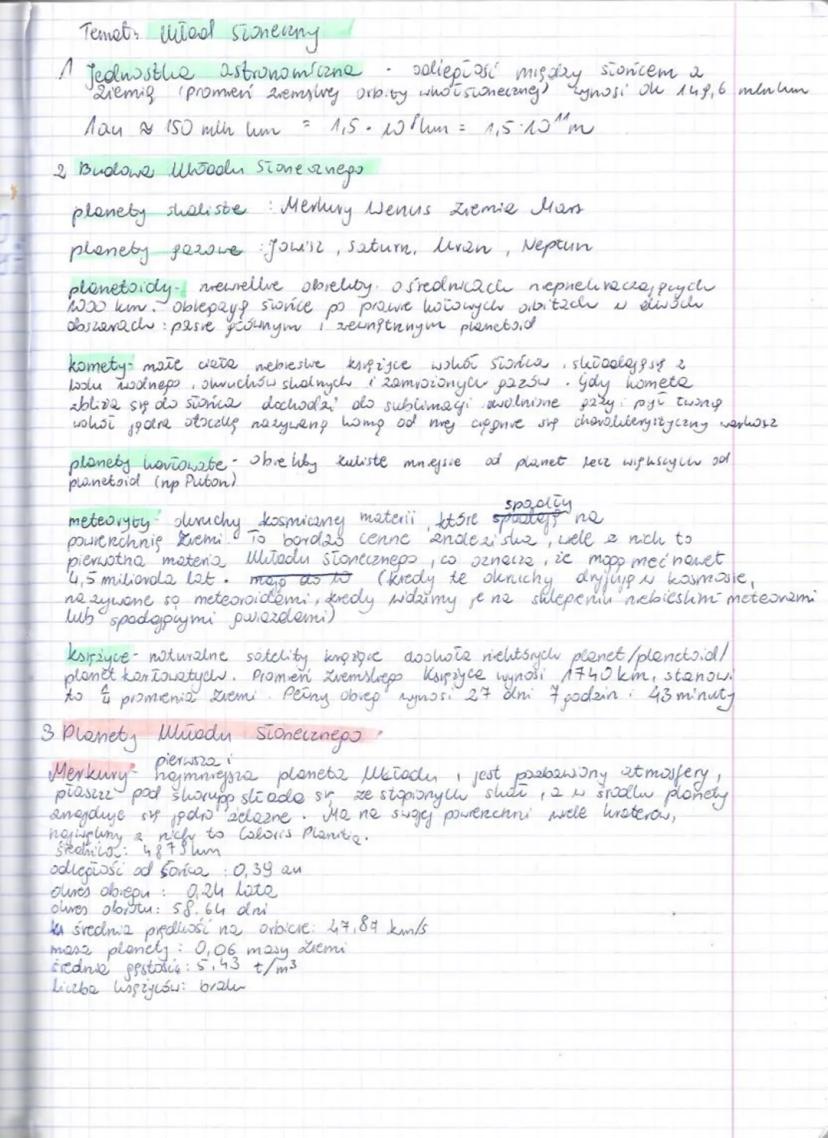 Temat: Układ Słoneczny
1 Jednostka astronomiczna - odległość między słońcem a
Ziemią (promień ziemskiej orbity wokółsłonecznej) wynosi ok 149,6 mln km
1au ≈ 150 mln km = 1,5 · 10⁸ km = 1,5 · 10¹¹ m
2 Budowa Układu Słonecznego
planety skaliste : Merkury Wenus Ziemia Mars
planety gazowe : Jowisz, Saturn, Uran, Neptun
planetoidy - niewielkie obiekty o średnicach nieprzekraczających
1000 km. obiegają słońce po prawie kołowych orbitach w dwóch
obszarach : pasie głównym i zewnętrznym planetoid
komety - małe ciała niebieskie krążące wokół Słońca, składające się z
lodu wodnego, okruchów skalnych i zamrożonych gazów. Gdy kometa
zbliża się do słońca dochodzi do sublimacji uwolnione gazy i pył tworzą
wokół jądra otoczkę nazywaną komą od niej ciągnie się charakterystyczny warkocz
planety karłowate - obiekty kuliste mniejsze od planet lecz większych od
planetoid (np Pluton)
meteoryty - okruchy kosmicznej materii, które spadają spadły na
powierzchnię Ziemi. To bardzo cenne znaleziska, wiele z nich to
pierwotna materia Układu Słonecznego, co oznacza, że mogą mieć nawet
4,5 miliarda lat. mają do to (kiedy te okruchy dryfują w kosmosie,
nazywane są meteoroidami, kiedy widzimy je na sklepieniu niebieskim meteorami
lub spadającymi gwiazdami)
księżyce - naturalne satelity krążące dookoła niektórych planet/planetoid/
planet karłowatych. Promień ziemskiego Księżyca wynosi 1740 km, stanowi
to ¼ promienia Ziemi. Pełny obieg wynosi 27 dni 7 godzin i 43 minuty
3 Planety Układu Słonecznego
Merkury - pierwsza i najmniejsza planeta Układu, jest pozbawiony atmosfery,
płaszcz pod skorupą składa się ze stopionych skał, a w środku planety
znajduje się jądro żelazne. Ma na swojej powierzchni wiele kraterów,
największy z nich to Caloris Planitia.
średnica: 4879 km
odległość od Słońca : 0,39 au
okres obiegu : 0,24 lata
okres obrotu: 58,64 dni
średnia prędkość na orbicie: 47,87 km/s
masa planety : 0,06 masy Ziemi
średnia gęstość: 5,43 t/m³
liczba księżyców: brak